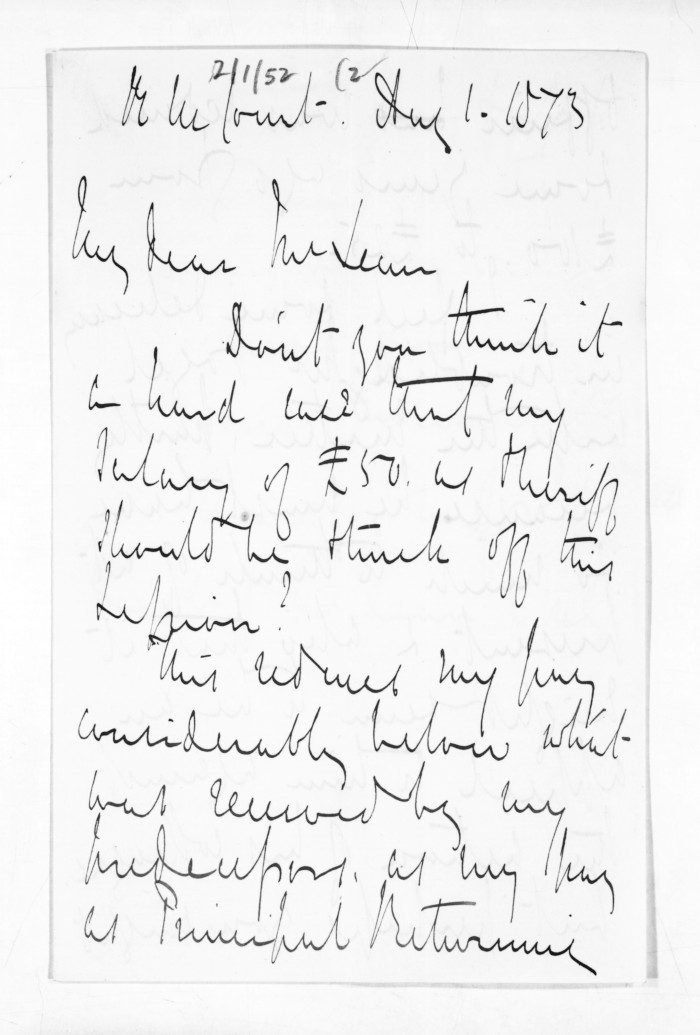 2/1/52 (2
R M Court. Aug 1. 1873
My dear McLean
Don't you think it
a hard case that my
Salary of £50. as Sheriff
should be struck off this
Session?
This reduces my pay
considerably below what
was received by my
predecessors. as my pay
as Principal Returning